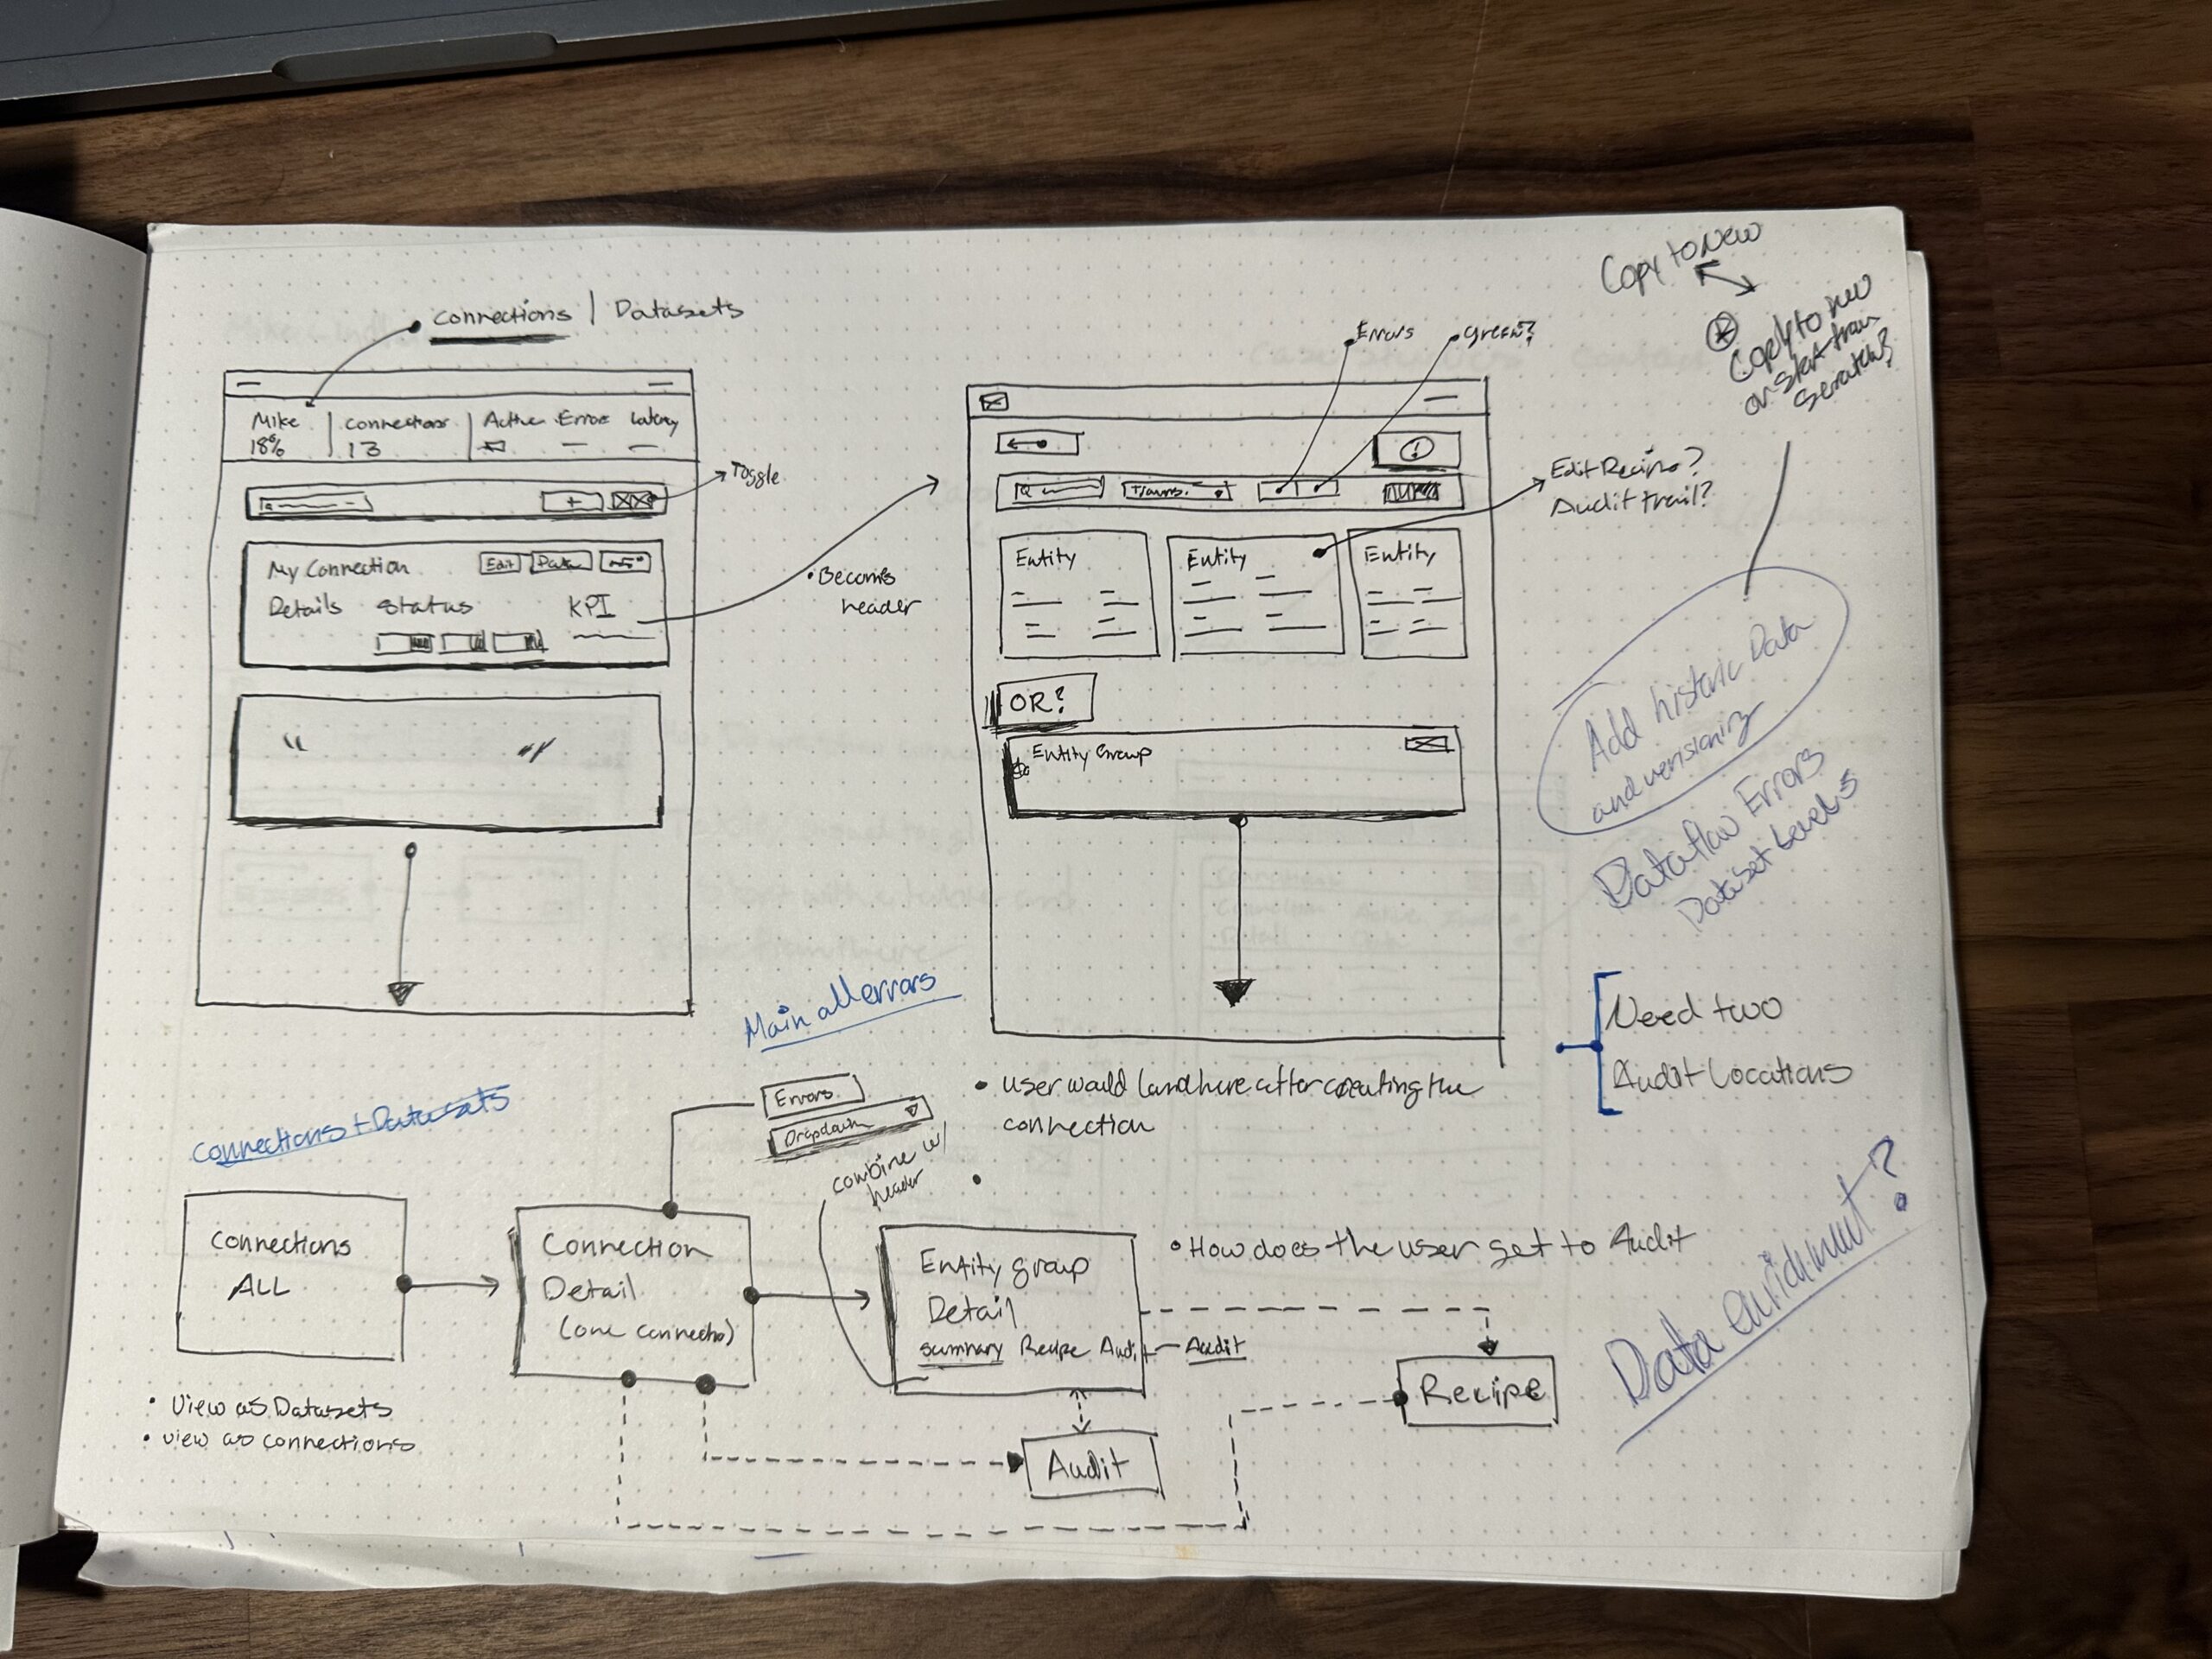 Connections | Datasets
Mike | Connections | Active Error Latency
18% | 13
Toggle
My Connection Edit Data
Details Status KPI
• Becomes
header
Errors
Green?
Edit Recipe?
Audit trail?
Entity Entity Entity
OR?
Entity Group
Copy to New
Copy to new
or start from
scratch?
Add historic Data
and versioning
Dataflow Errors
Dataset Levels
Need two
Audit Locations
Data enrichment?
Main all errors
Errors
Dropdown
combine w/
header
• user would land here after creating the
connection
•
Connections + Datasets
Connections
ALL
• View as Datasets
• view as connections
Connection
Detail
Entity group
Detail
Summary Recipe Audit — Audit
• How does the user get to Audit
Recipe
Audit